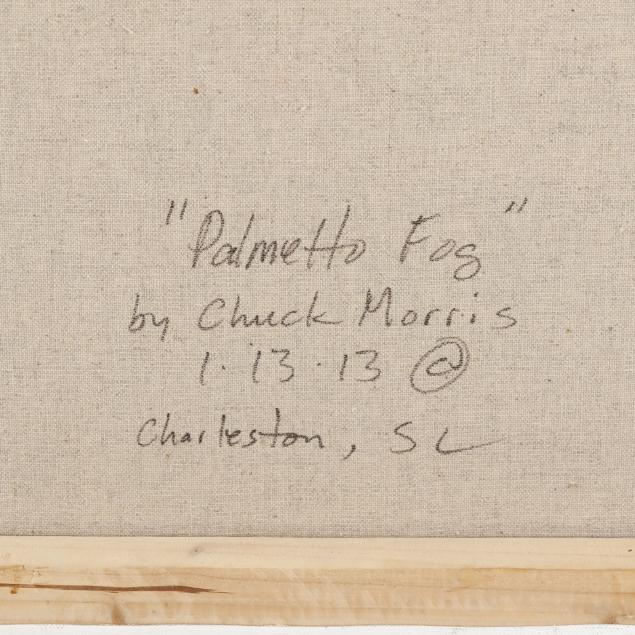 "Palmetto Fog"
by Chuck Morris
1·13·13 ©
Charleston, SC